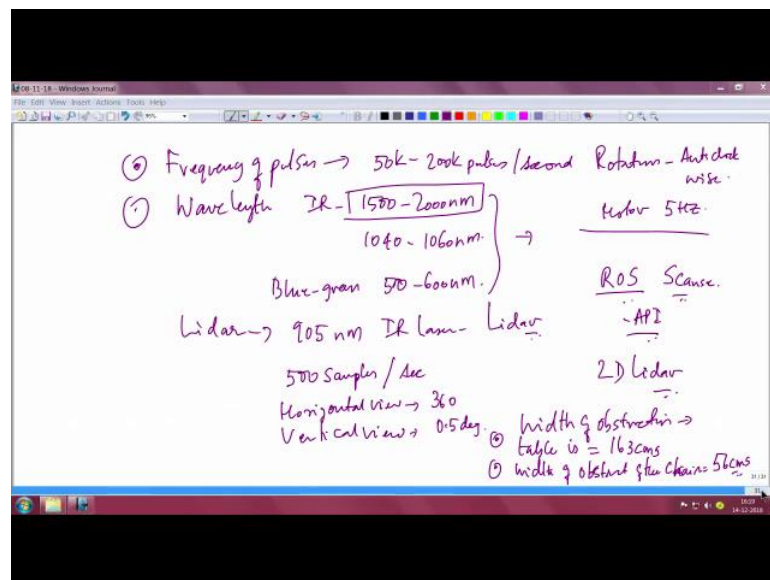 08-11-18 - Windows Journal
File Edit View Insert Actions Tools Help
Frequency of pulses → 50k - 200k pulses/second
Wavelength IR - 1500-2000nm
1040 - 1060nm. →
Blue-green 500-600nm.
Lidar → 905 nm IR laser - Lidar
500 Samples / Sec
Horizontal view → 360
Vertical view → 0.5 deg.
Rotation - Anticlock
wise.
Motor 5Hz.
ROS Scanse.
- API
2D Lidar
width of obstruction →
table is = 163cms
width of obstruct of the Chair = 56cms
16:19
14-12-2018